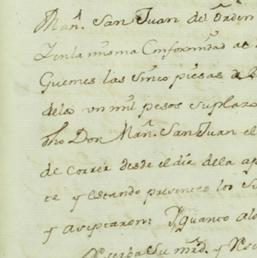 Man.l San Juan del Orden
en la misma Conformidad
Guemes las sinco piesas de
delos un mil pesos suplazo
dho Don Man.l San Juan el
de correr desde el dia dela
te y estando presentes los
y aseptaron: Yquanto al